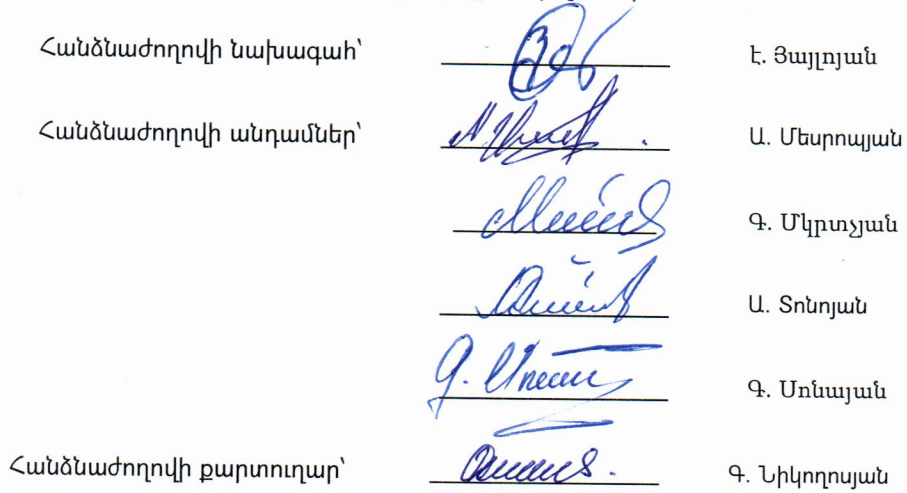 Հանձնաժողովի նախագահ՝ Է. Յայլոյան
Հանձնաժողովի անդամներ՝ Ա. Մեսրոպյան
Գ. Մկրտչյան
Ա. Տոնոյան
Գ. Սոնայան
Հանձնաժողովի քարտուղար՝ Գ. Նիկողոսյան